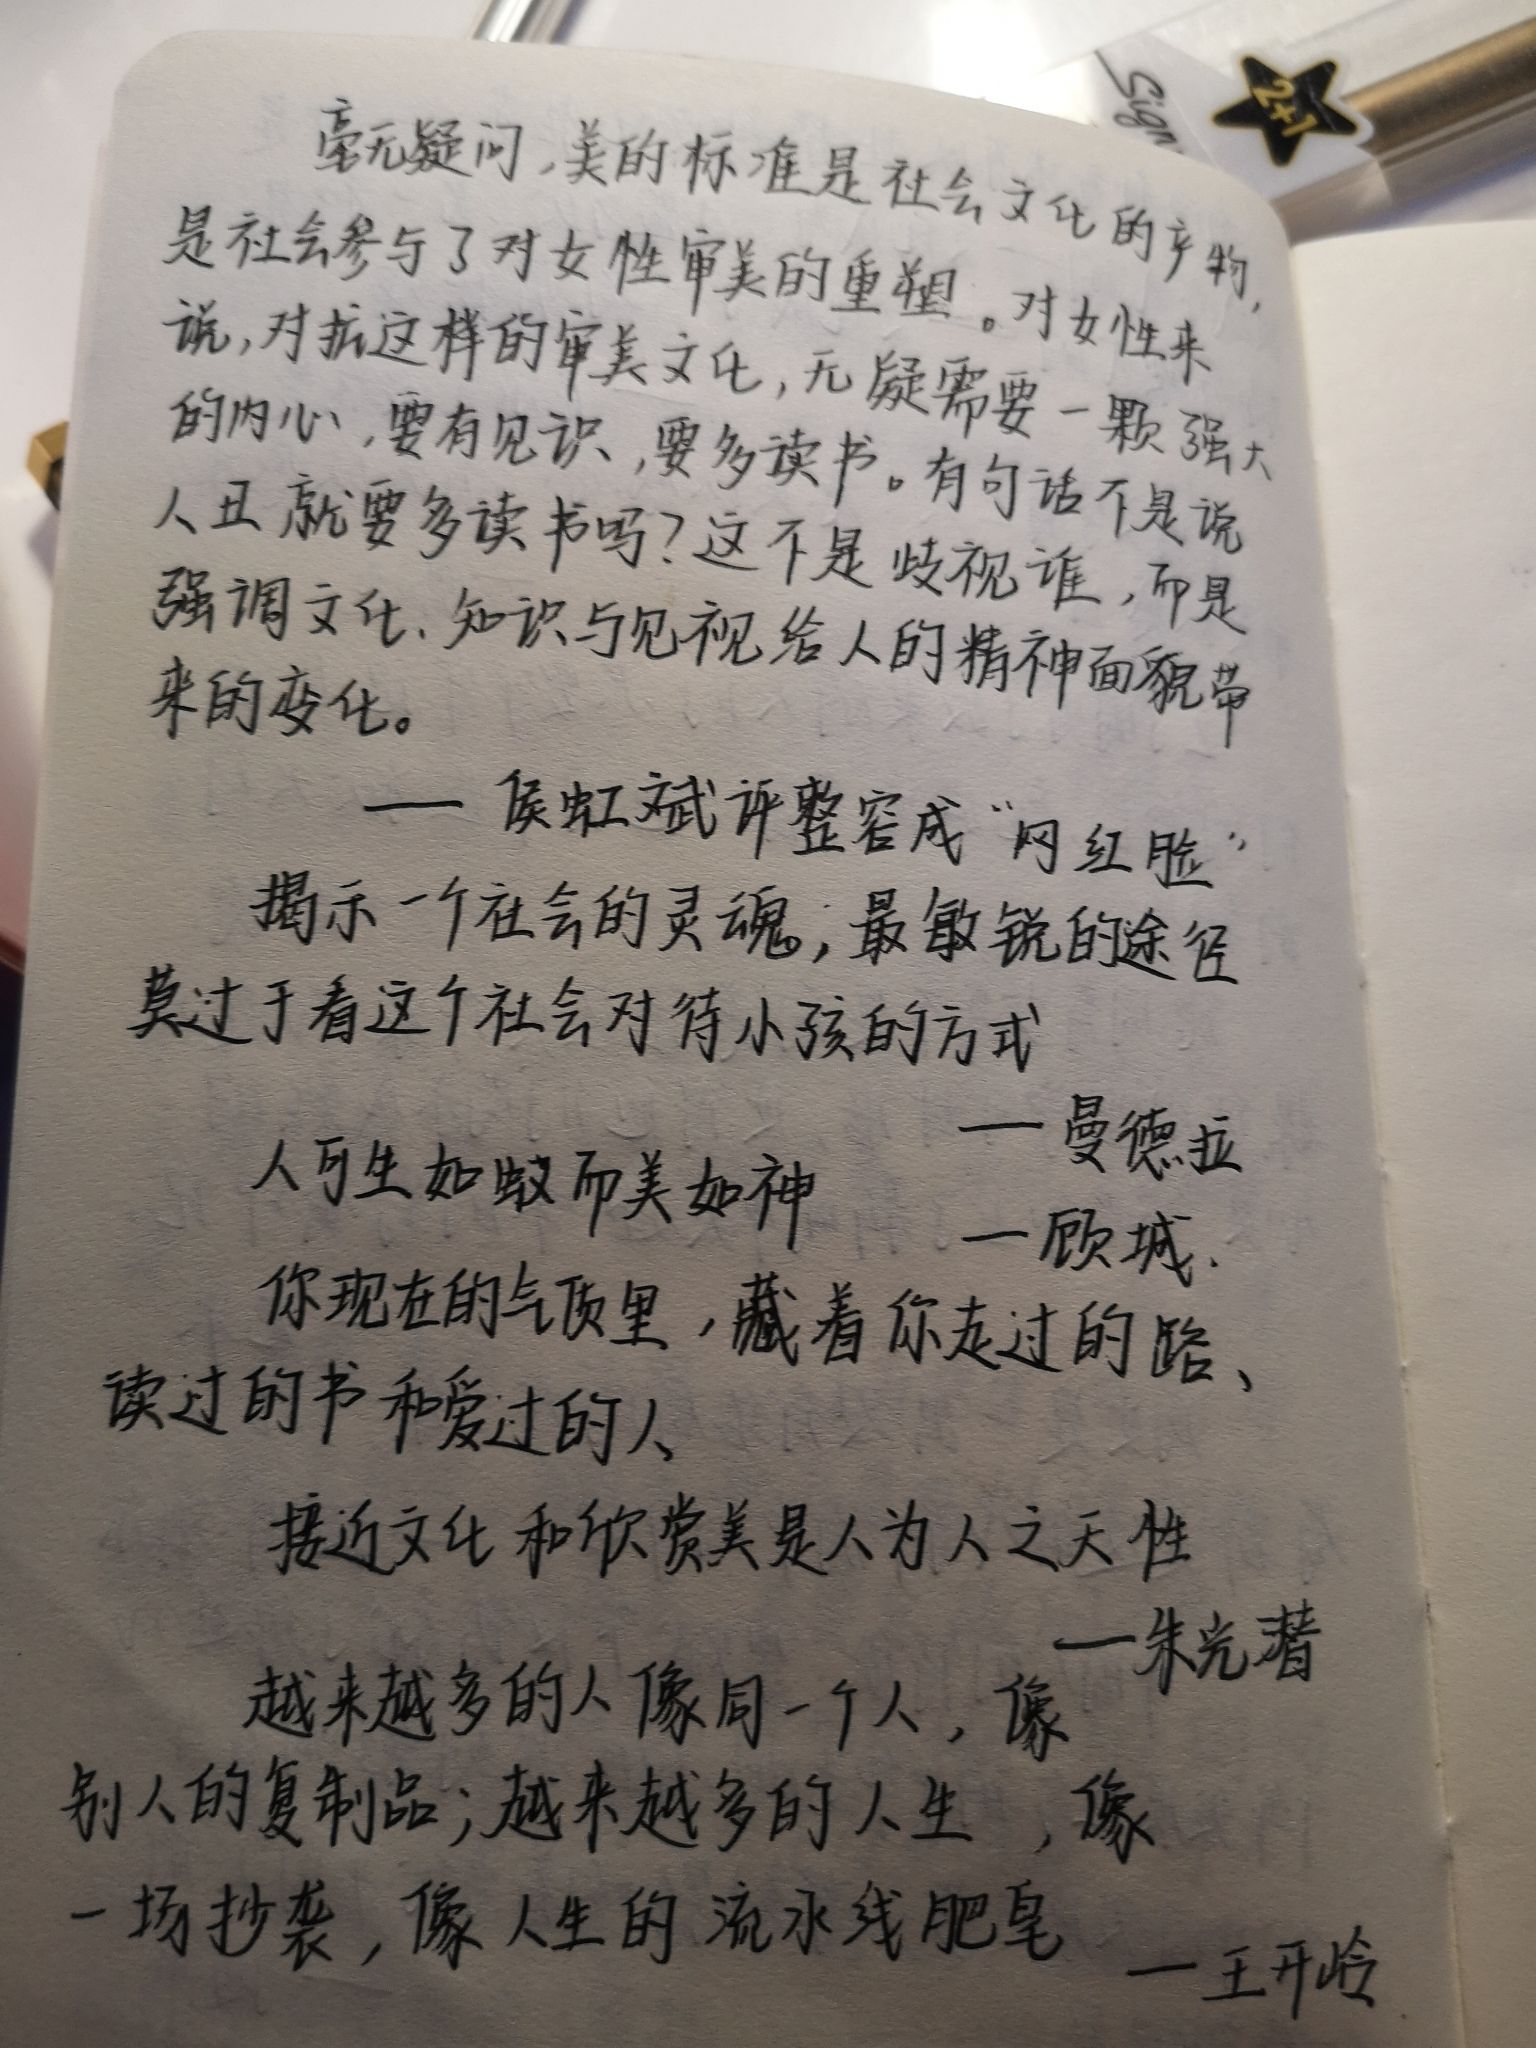 Sign
2+1
毫无疑问,美的标准是社会文化的产物,
是社会参与了对女性审美的重塑。对女性来
说,对抗这样的审美文化,无疑需要一颗强大
的内心,要有见识,要多读书。有句话不是说
人丑就要多读书吗?这不是歧视谁,而是
强调文化、知识与见视给人的精神面貌带
来的变化。
——侯虹斌评整容成“网红脸”
揭示一个社会的灵魂,最敏锐的途径
莫过于看这个社会对待小孩的方式
——曼德拉
人可生如蚁而美如神
——顾城.
你现在的气质里,藏着你走过的路、
读过的书和爱过的人
接近文化和欣赏美是人为人之天性
——朱光潜
越来越多的人像同一个人,像
别人的复制品;越来越多的人生,像
一场抄袭,像人生的流水线肥皂
——王开岭